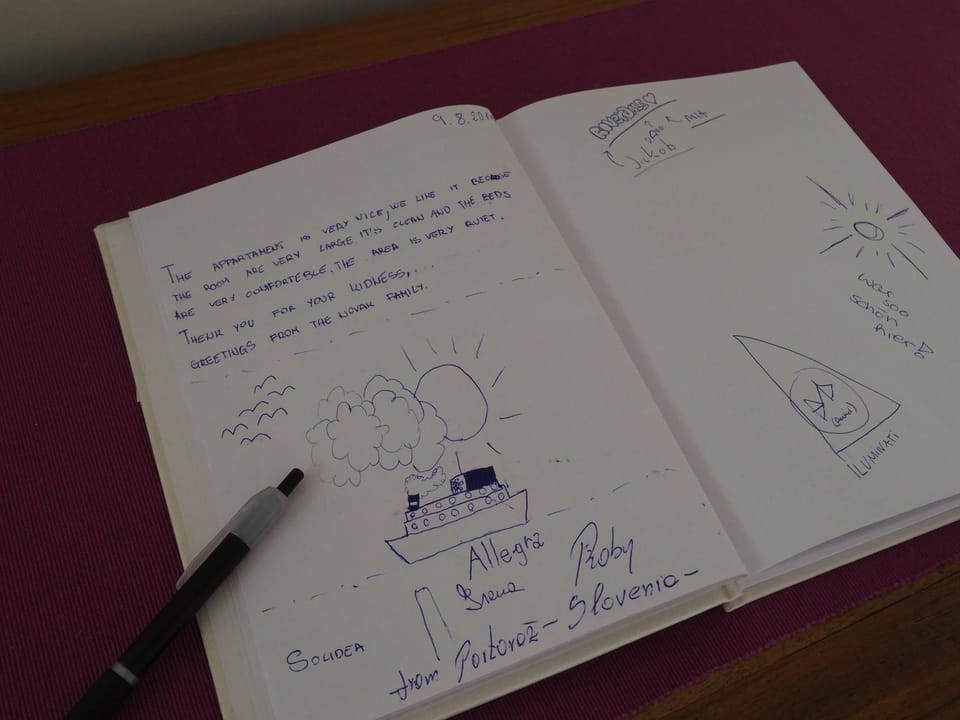 9.8.201
THE APPARTAMENT IS VERY NICE, WE LIKE IT BECAUSE
THE ROOM ARE VERY LARGE. IT'S CLEAN AND THE BEDS
ARE VERY COMFORTEBLE. THE AREA IS VERY QUIET.
THENK YOU FOR YOUR KIDNESS,...
GREETINGS FROM THE NOVAK FAMILY.
Allegra
Roby
SOLIDEA
from Portorož - Slovenia -
MIA
Jakob
War
soo
schön
hier
ILUMINATI